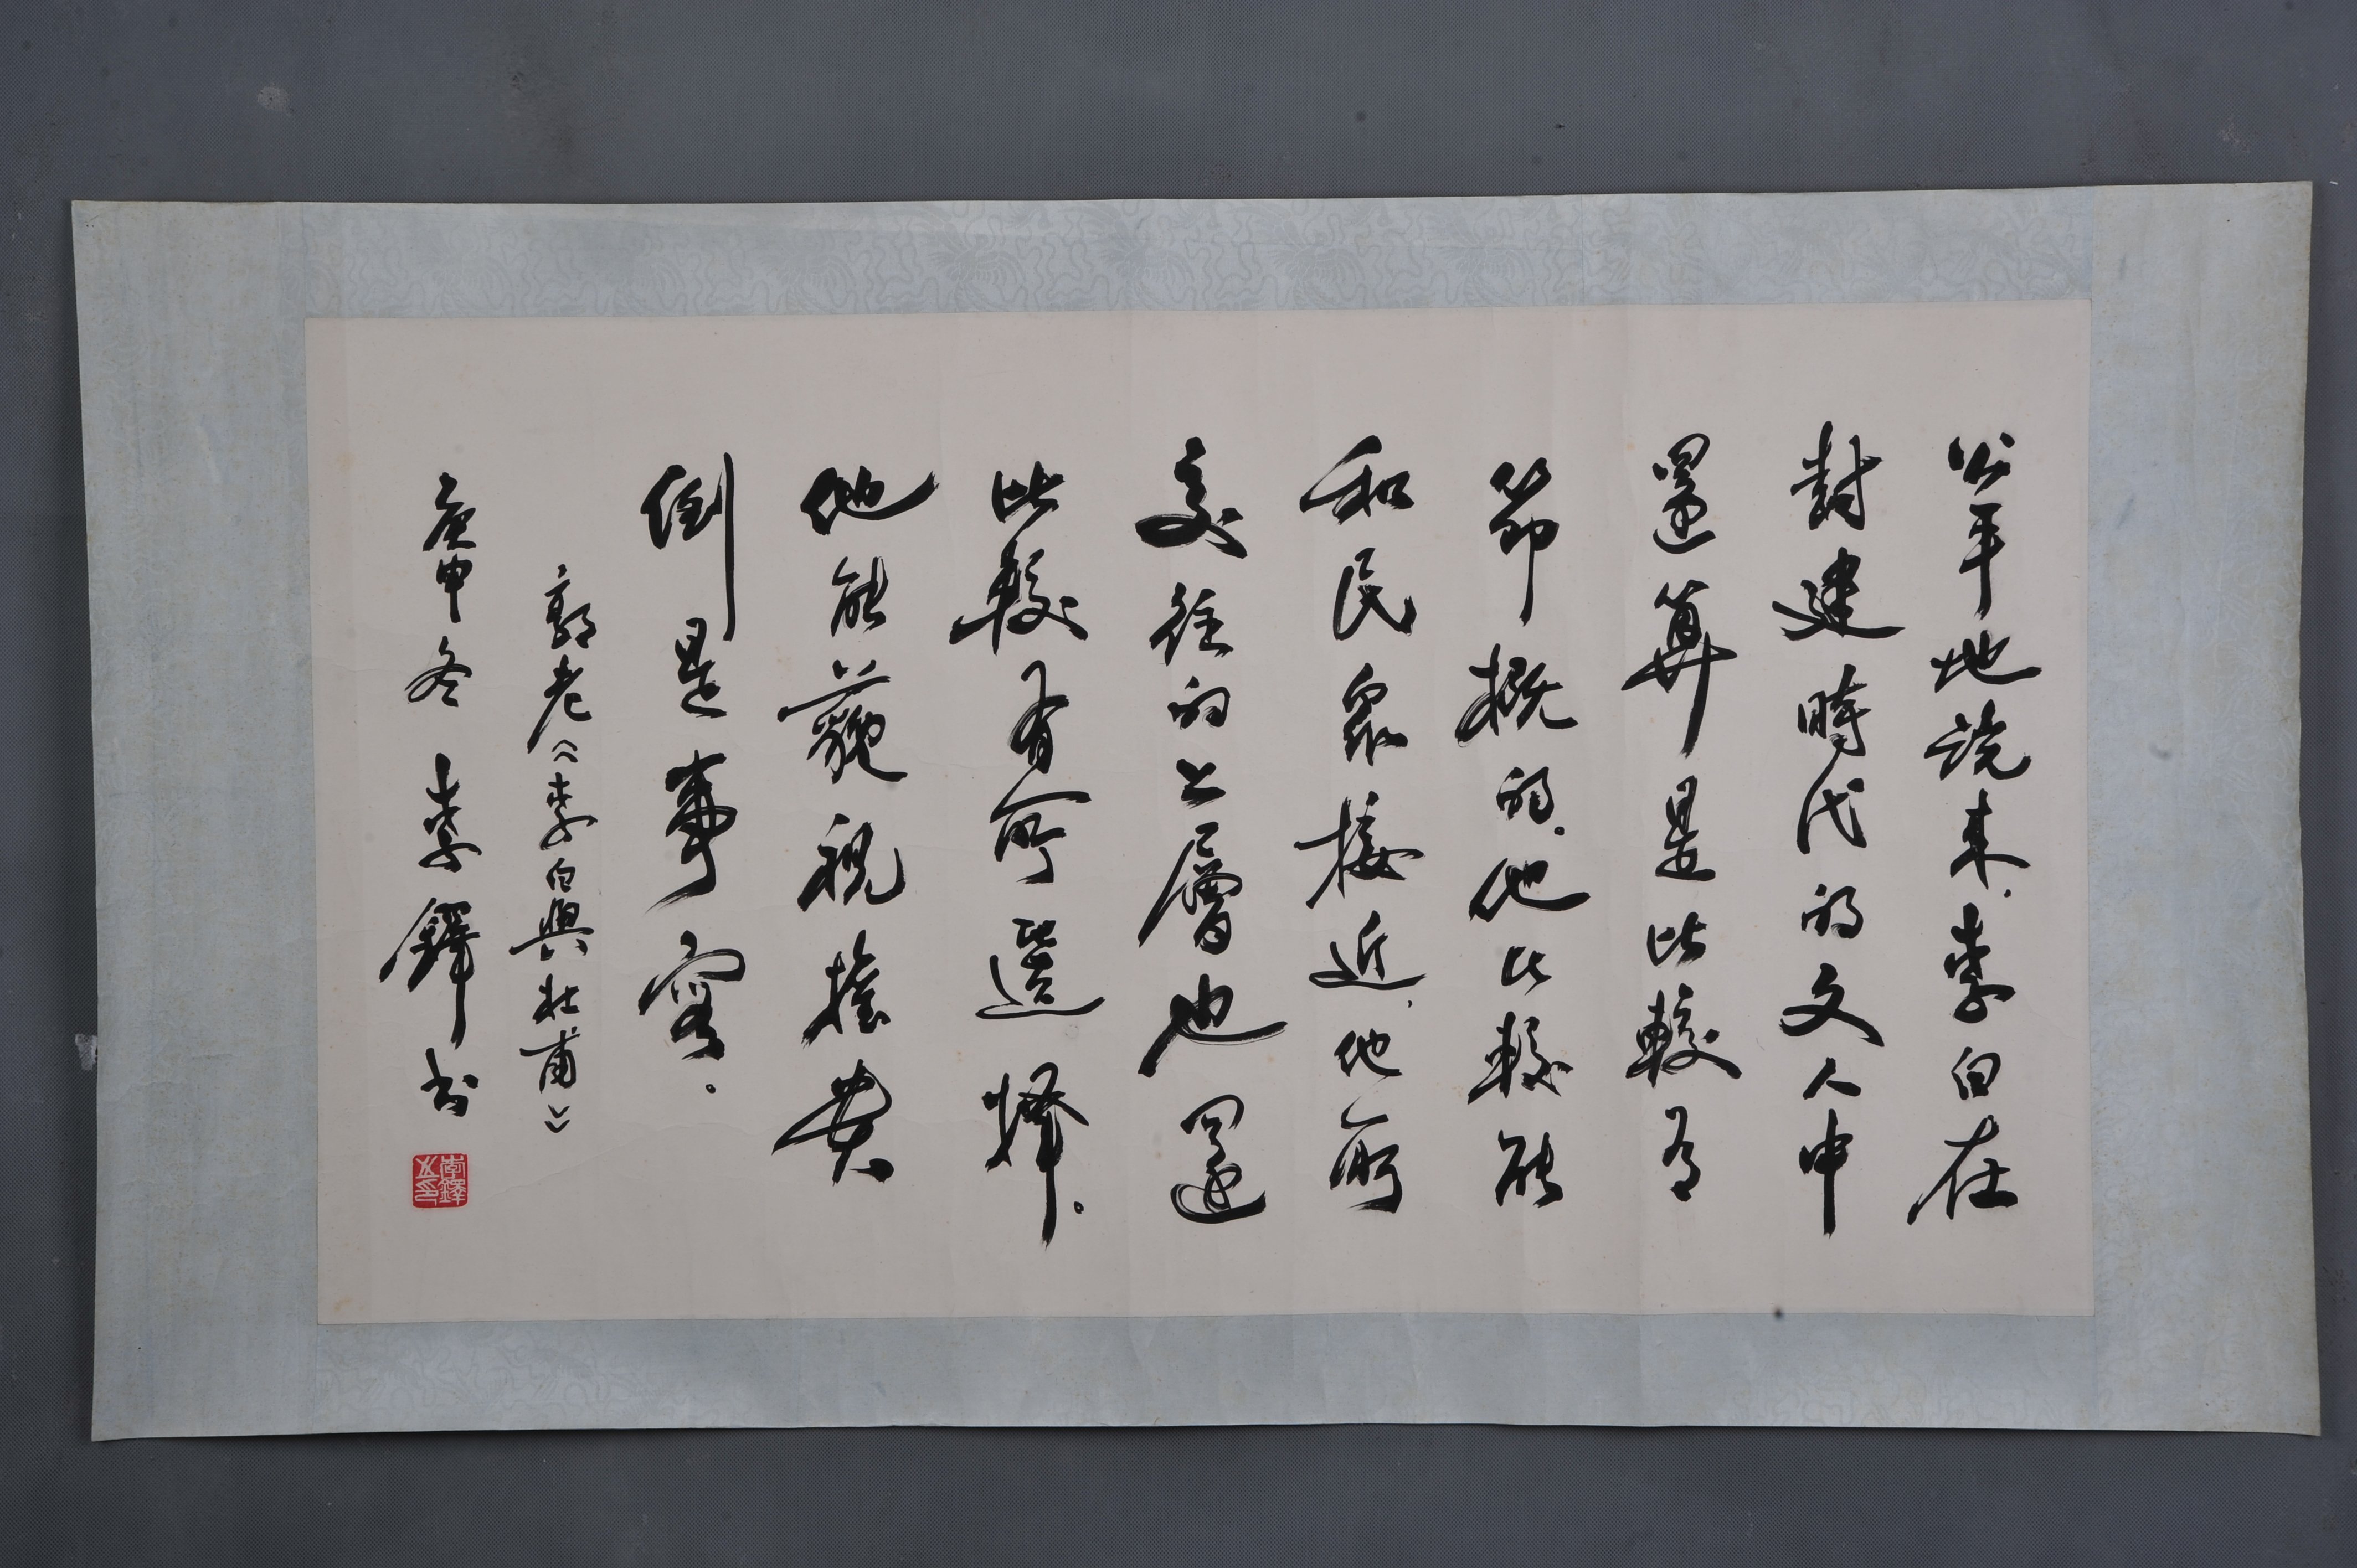 公平地說来，李白在
封建時代的文人中
還算是比較有
節概的，他比較能
和民眾接近，他所
交往的上層也還
比較有所選擇。
他能藐視權贵
倒是事實。
郭老《李白與杜甫》
庚申冬 李鐸书
李鐸之印